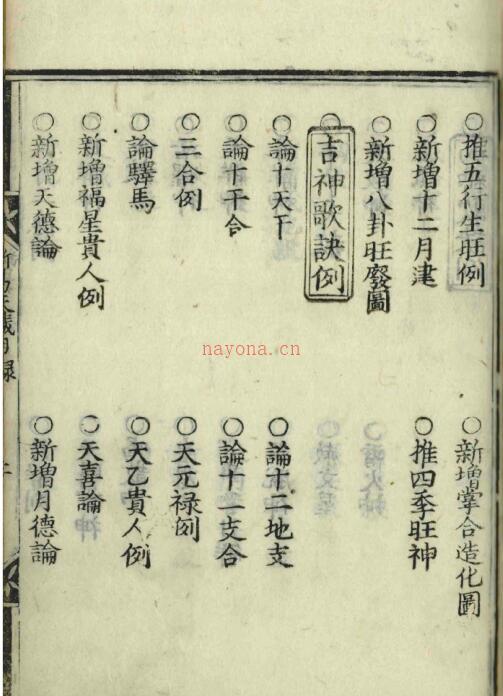 ○推五行生旺例 ○新增掌合造化圖
○新增十二月建 ○推四季旺神
○新增八卦旺廢圖
○吉神歌訣例
○論十天干 ○論十二地支
○論十干合 ○論十一支合
○三合例 ○天元禄例
○論驛馬 ○天乙貴人例
○新增福星貴人例 ○天喜論
○新增天德論 ○新增月德論
nayona.cn